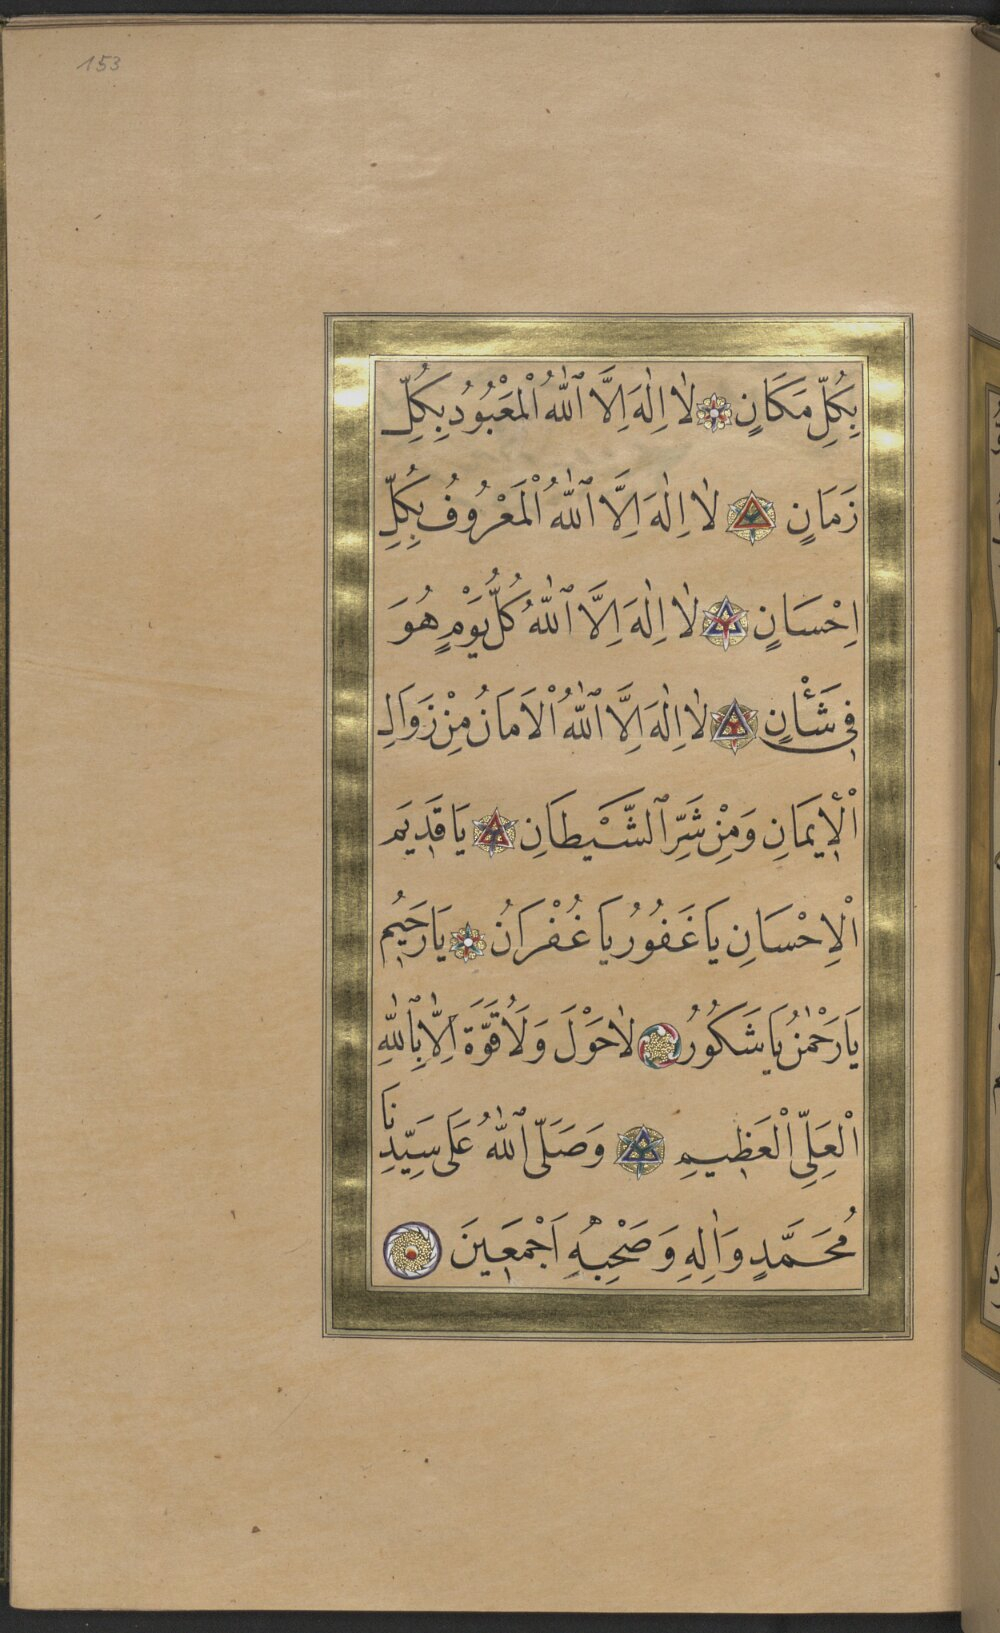 153
بِكُلِّ مَكَانٍ لَا اِلٰهَ اِلَّا ٱللّٰهُ الْمَعْبُودُ بِكُلِّ
زَمَانٍ لَا اِلٰهَ اِلَّا ٱللّٰهُ الْمَعْرُوفُ بِكُلِّ
اِحْسَانٍ لَا اِلٰهَ اِلَّا ٱللّٰهُ كُلُّ يَوْمٍ هُوَ
فِى شَأْنٍ لَا اِلٰهَ اِلَّا ٱللّٰهُ الْاَمَانُ مِنْ زَوَالِ
الْاِيمَانِ وَمِنْ شَرِّ ٱلشَّيْطَانِ يَا قَدِيمَ
الْاِحْسَانِ يَا غَفُورُ يَا غُفْرَانُ يَا رَحِيمُ
يَا رَحْمٰنُ يَا شَكُورُ لَا حَوْلَ وَلَا قُوَّةَ اِلَّا بِٱللّٰهِ
الْعَلِىِّ الْعَظِيمِ وَصَلَّى ٱللّٰهُ عَلٰى سَيِّدِنَا
مُحَمَّدٍ وَاٰلِهِ وَصَحْبِهِ اَجْمَعِينَ